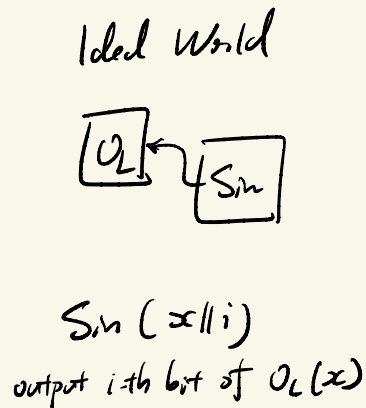 Ideal World
O_L
Sim
Sim (x||i)
output i-th bit of O_L(x)